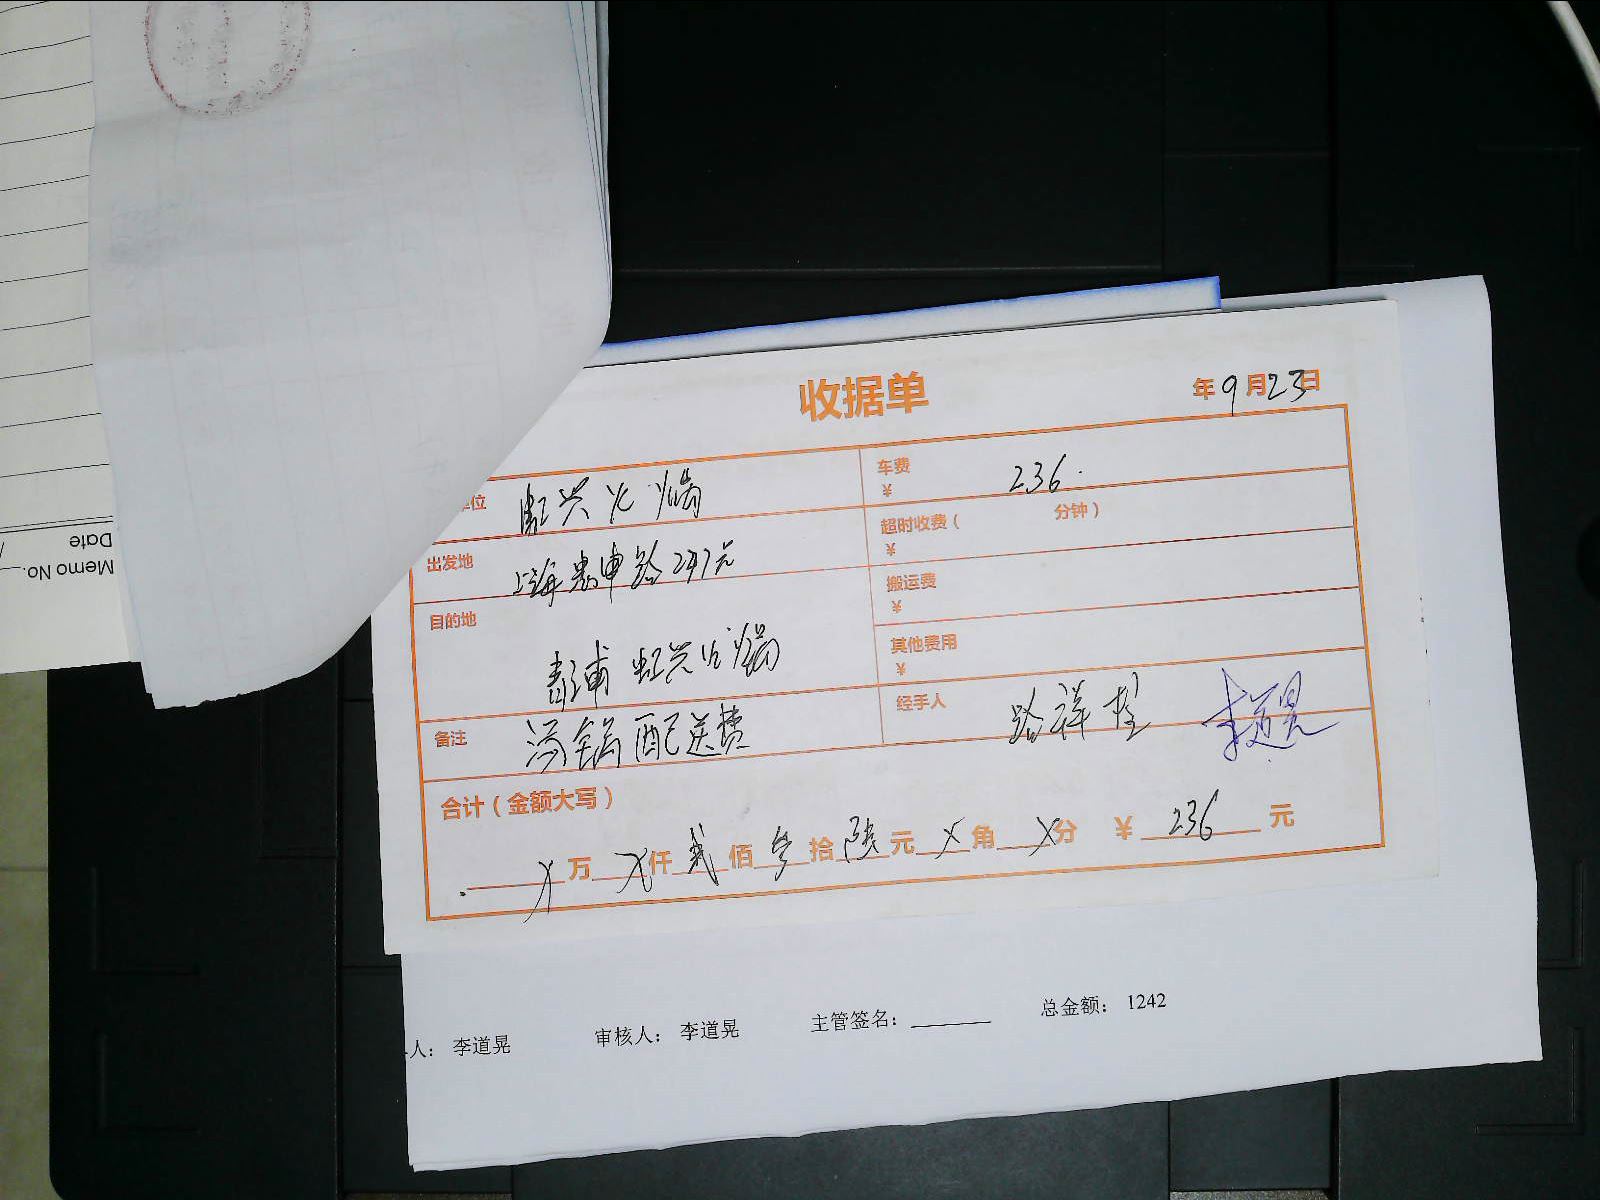 收据单
年9月23日
单位 虹兴火锅
车费 236.
¥
超时收费( 分钟)
¥
出发地 上海 申路 247
搬运费
¥
目的地
虹兴火锅
其他费用
¥
备注 汤锅配送费
经手人 路祥 李道晃
合计(金额大写)
X万X仟贰佰叁拾陆元X角X分 ¥236元
人: 李道晃 审核人: 李道晃 主管签名: 总金额: 1242
Memo No.
Date